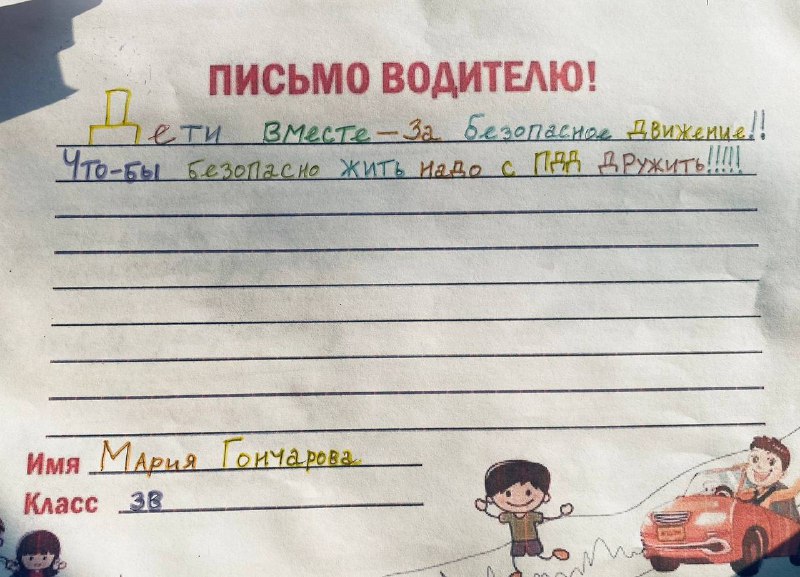 ПИСЬМО ВОДИТЕЛЮ!
Дети вместе-За безопасное движение!!
Что-бы безопасно жить надо с ПДД дружить!!!!!
Имя Мария Гончарова
Класс 3В